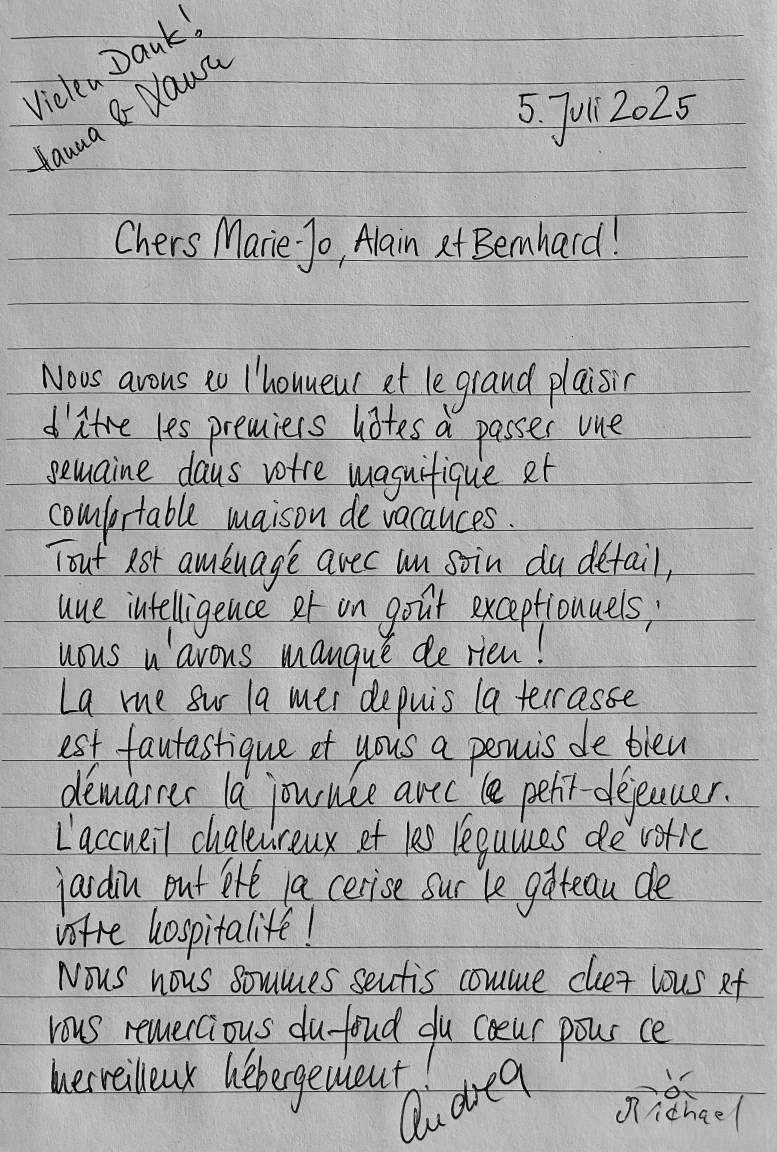 Vielen Dank!
Hanna & Laura
5. Juli 2025
Chers Marie-Jo, Alain et Bernhard!
Nous avons eu l'honneur et le grand plaisir
d'être les premiers hôtes à passer une
semaine dans votre magnifique et
comfortable maison de vacances.
Tout est aménagé avec un soin du détail,
une intelligence et un goût exceptionnels;
nous n'avons manqué de rien!
La vue sur la mer depuis la terrasse
est fantastique et nous a permis de bien
démarrer la journée avec le petit-déjeuner.
L'accueil chaleureux et les légumes de votre
jardin ont été la cerise sur le gâteau de
votre hospitalité!
Nous nous sommes sentis comme chez vous et
vous remercions du fond du cœur pour ce
merveilleux hébergement!
Andrea
Michael